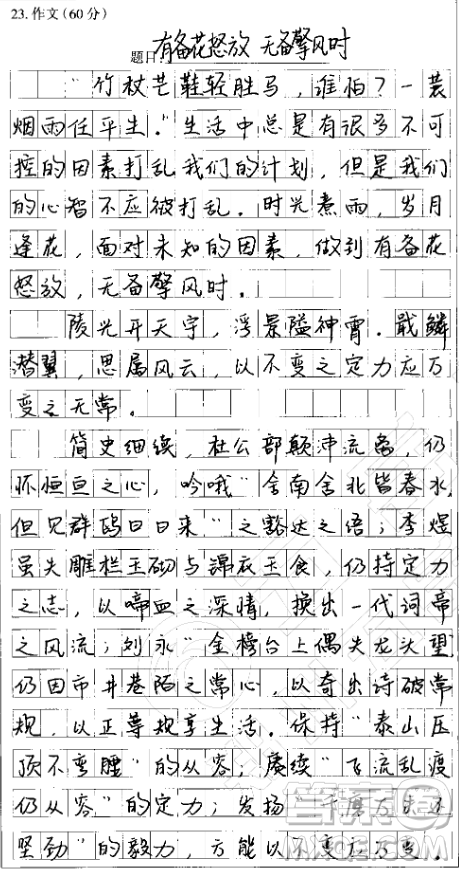 23.作文(60分)
题目 有备花怒放 无备擎风时
"竹杖芒鞋轻胜马,谁怕?一蓑
烟雨任平生."生活中总是有很多不可
控的因素打乱我们的计划,但是我们
的心智不应被打乱.时光煮雨,岁月
逢花,面对未知的因素,做到有备花
怒放,无备擎风时.
陵光开天宇,浮景隘神霄.戢鳞
潜翼,思属风云,以不变之定力应万
变之无常.
简史细续,杜公部颠沛流离,仍
怀恒亘之心,吟哦"舍南舍北皆春水,
但见群鸥日日来"之豁达之语;李煜
虽失雕栏玉砌与锦衣玉食,仍持定力
之志,以啼血之深情,换出一代词帝
之风流;刘永"金榜台上偶失龙头望
仍因市井巷陌之常心,以奇出诗破常
规,以正尊规享生活.保持"泰山压
顶不弯腰"的从容;赓续"飞流乱渡
仍从容"的定力;发扬"千磨万击还
坚劲"的毅力,方能以不变应万变.